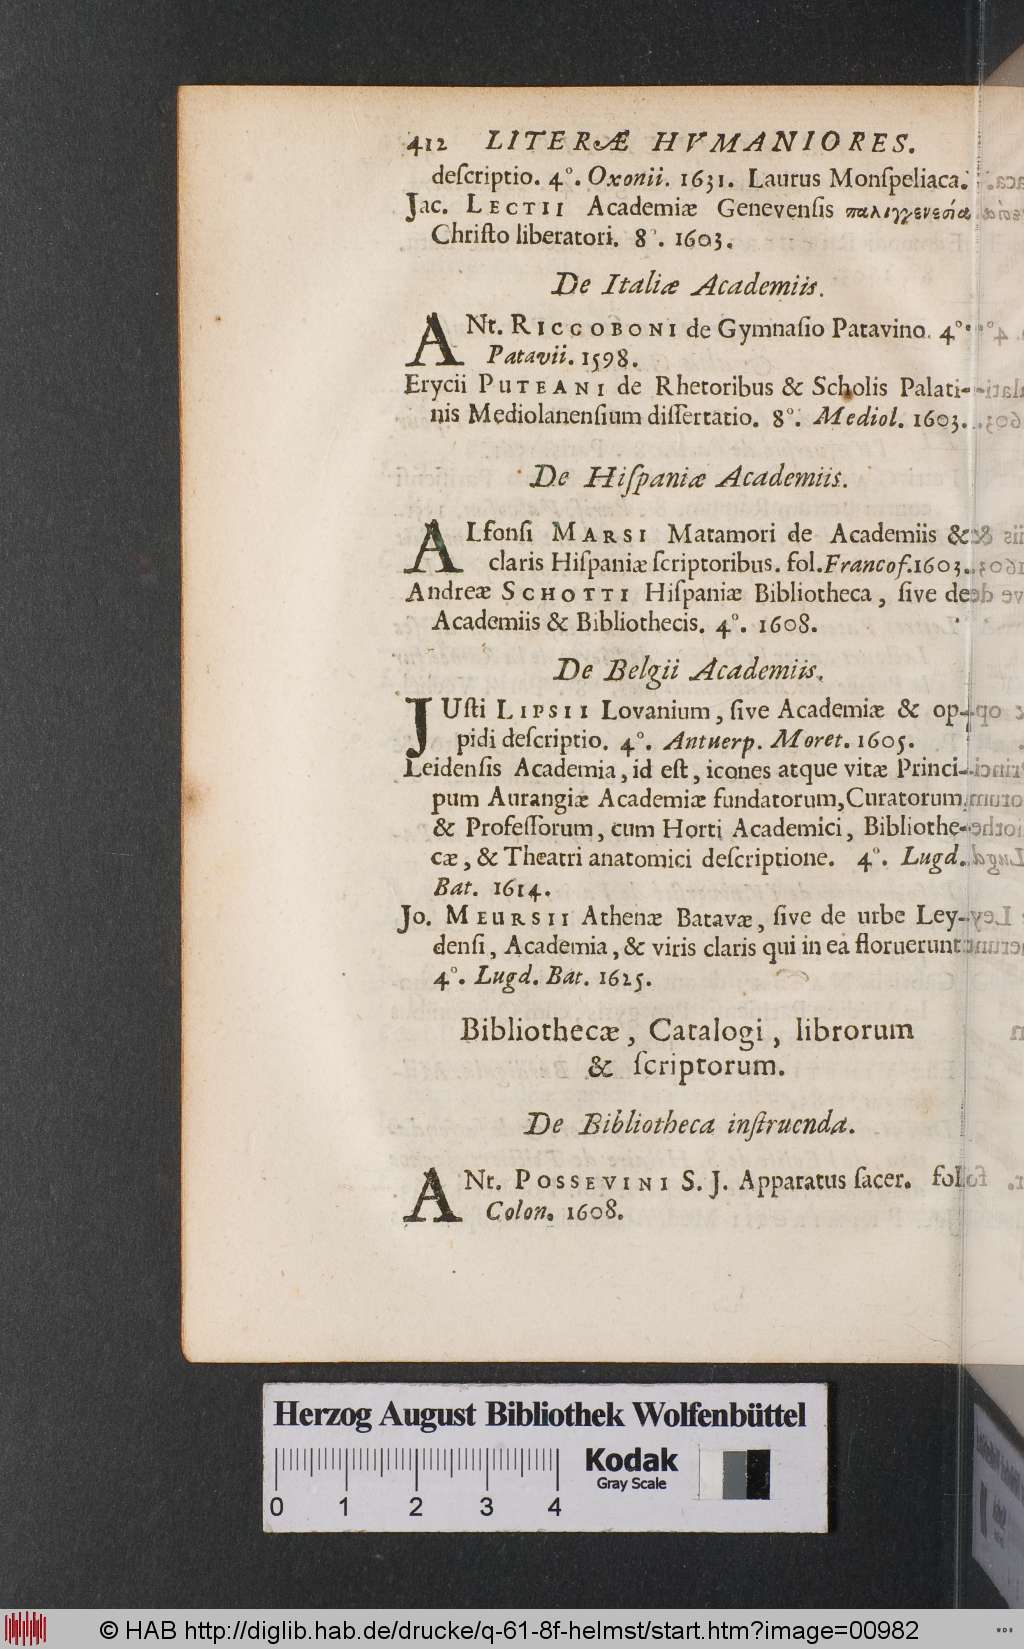 412 LITERÆ HVMANIORES.
deſcriptio. 4°. Oxonii. 1631. Laurus Monſpeliaca.
Jac. LECTII Academiæ Genevenſis παλιγγενεσία
Chriſto liberatori. 8°. 1603.
De Italiæ Academiis.
ANt. RICCOBONI de Gymnaſio Patavino. 4°.
Patavii. 1598.
Erycii PUTEANI de Rhetoribus & Scholis Palati-
nis Mediolanenſium diſſertatio. 8°. Mediol. 1603.
De Hiſpaniæ Academiis.
ALfonſi MARSI Matamori de Academiis &
claris Hiſpaniæ ſcriptoribus. fol. Francof. 1603.
Andreæ SCHOTTI Hiſpaniæ Bibliotheca, ſive de
Academiis & Bibliothecis. 4°. 1608.
De Belgii Academiis.
JUſti LIPSII Lovanium, ſive Academiæ & op-
pidi deſcriptio. 4°. Antuerp. Moret. 1605.
Leidenſis Academia, id eſt, icones atque vitæ Princi-
pum Aurangiæ Academiæ fundatorum, Curatorum
& Profeſſorum, cum Horti Academici, Bibliothe-
cæ, & Theatri anatomici deſcriptione. 4°. Lugd.
Bat. 1614.
Jo. MEURSII Athenæ Batavæ, ſive de urbe Ley-
denſi, Academia, & viris claris qui in ea floruerunt
4°. Lugd. Bat. 1625.
Bibliothecæ, Catalogi, librorum
& ſcriptorum.
De Bibliotheca inſtruenda.
ANt. POSSEVINI S. J. Apparatus ſacer. fol.
Colon. 1608.
Herzog August Bibliothek Wolfenbüttel
Kodak
Gray Scale
0 1 2 3 4
© HAB http://diglib.hab.de/drucke/q-61-8f-helmst/start.htm?image=00982